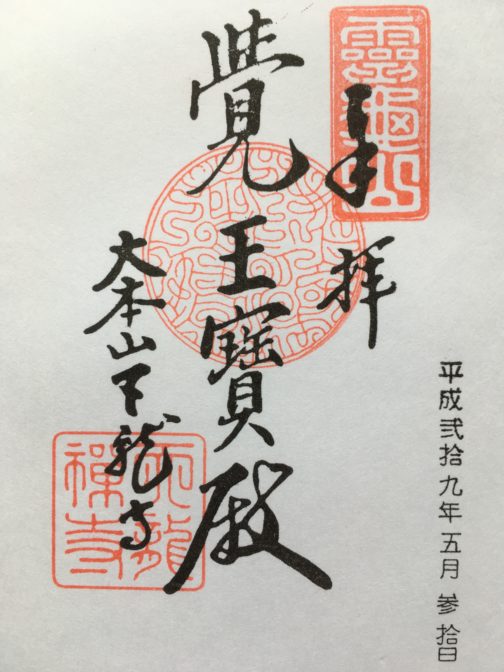 靈龜山
奉拝
平成弐拾九年五月参拾日
覺王寶殿
大本山天龍寺
天龍禪寺